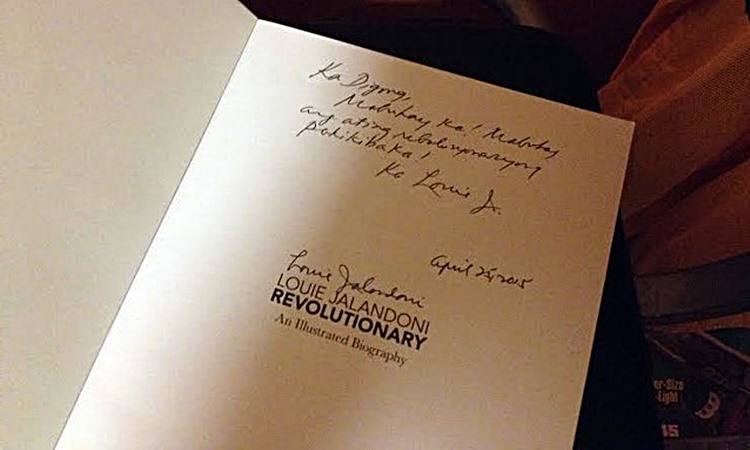 Ka Digong,
Mabuhay ka! Mabuhay
ang ating rebolusyonaryong
pakikibaka!
Ka Louie Jr.
April 25, 2015
Louie Jalandoni
LOUIE JALANDONI
REVOLUTIONARY
An Illustrated Biography
er-Size
-Light